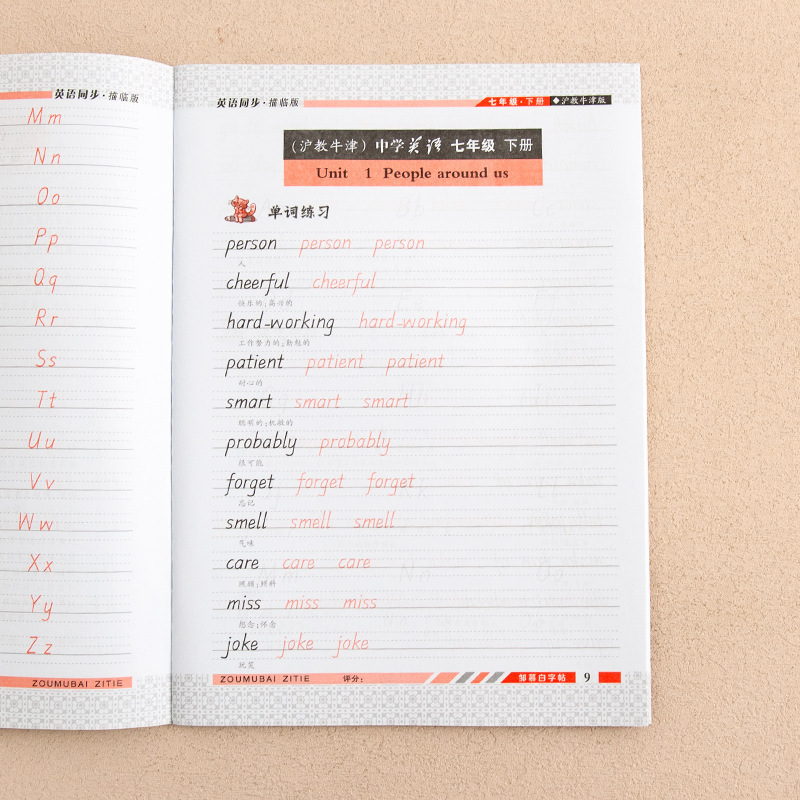 英语同步·描临版
Mm
Nn
Oo
Pp
Qq
Rr
Ss
Tt
Uu
Vv
Ww
Xx
Yy
Zz
ZOUMUBAI ZITIE
英语同步·描临版 七年级·下册 ◆沪教牛津版
（沪教牛津）中学英语 七年级 下册
Unit 1 People around us
单词练习
person person person
人
cheerful cheerful
快乐的;高兴的
hard-working hard-working
工作努力的;勤勉的
patient patient patient
耐心的
smart smart smart
聪明的;机敏的
probably probably
很可能
forget forget forget
忘记
smell smell smell
气味
care care care
照顾;照料
miss miss miss
想念;怀念
joke joke joke
玩笑
ZOUMUBAI ZITIE 评分: 邹慕白字帖 9